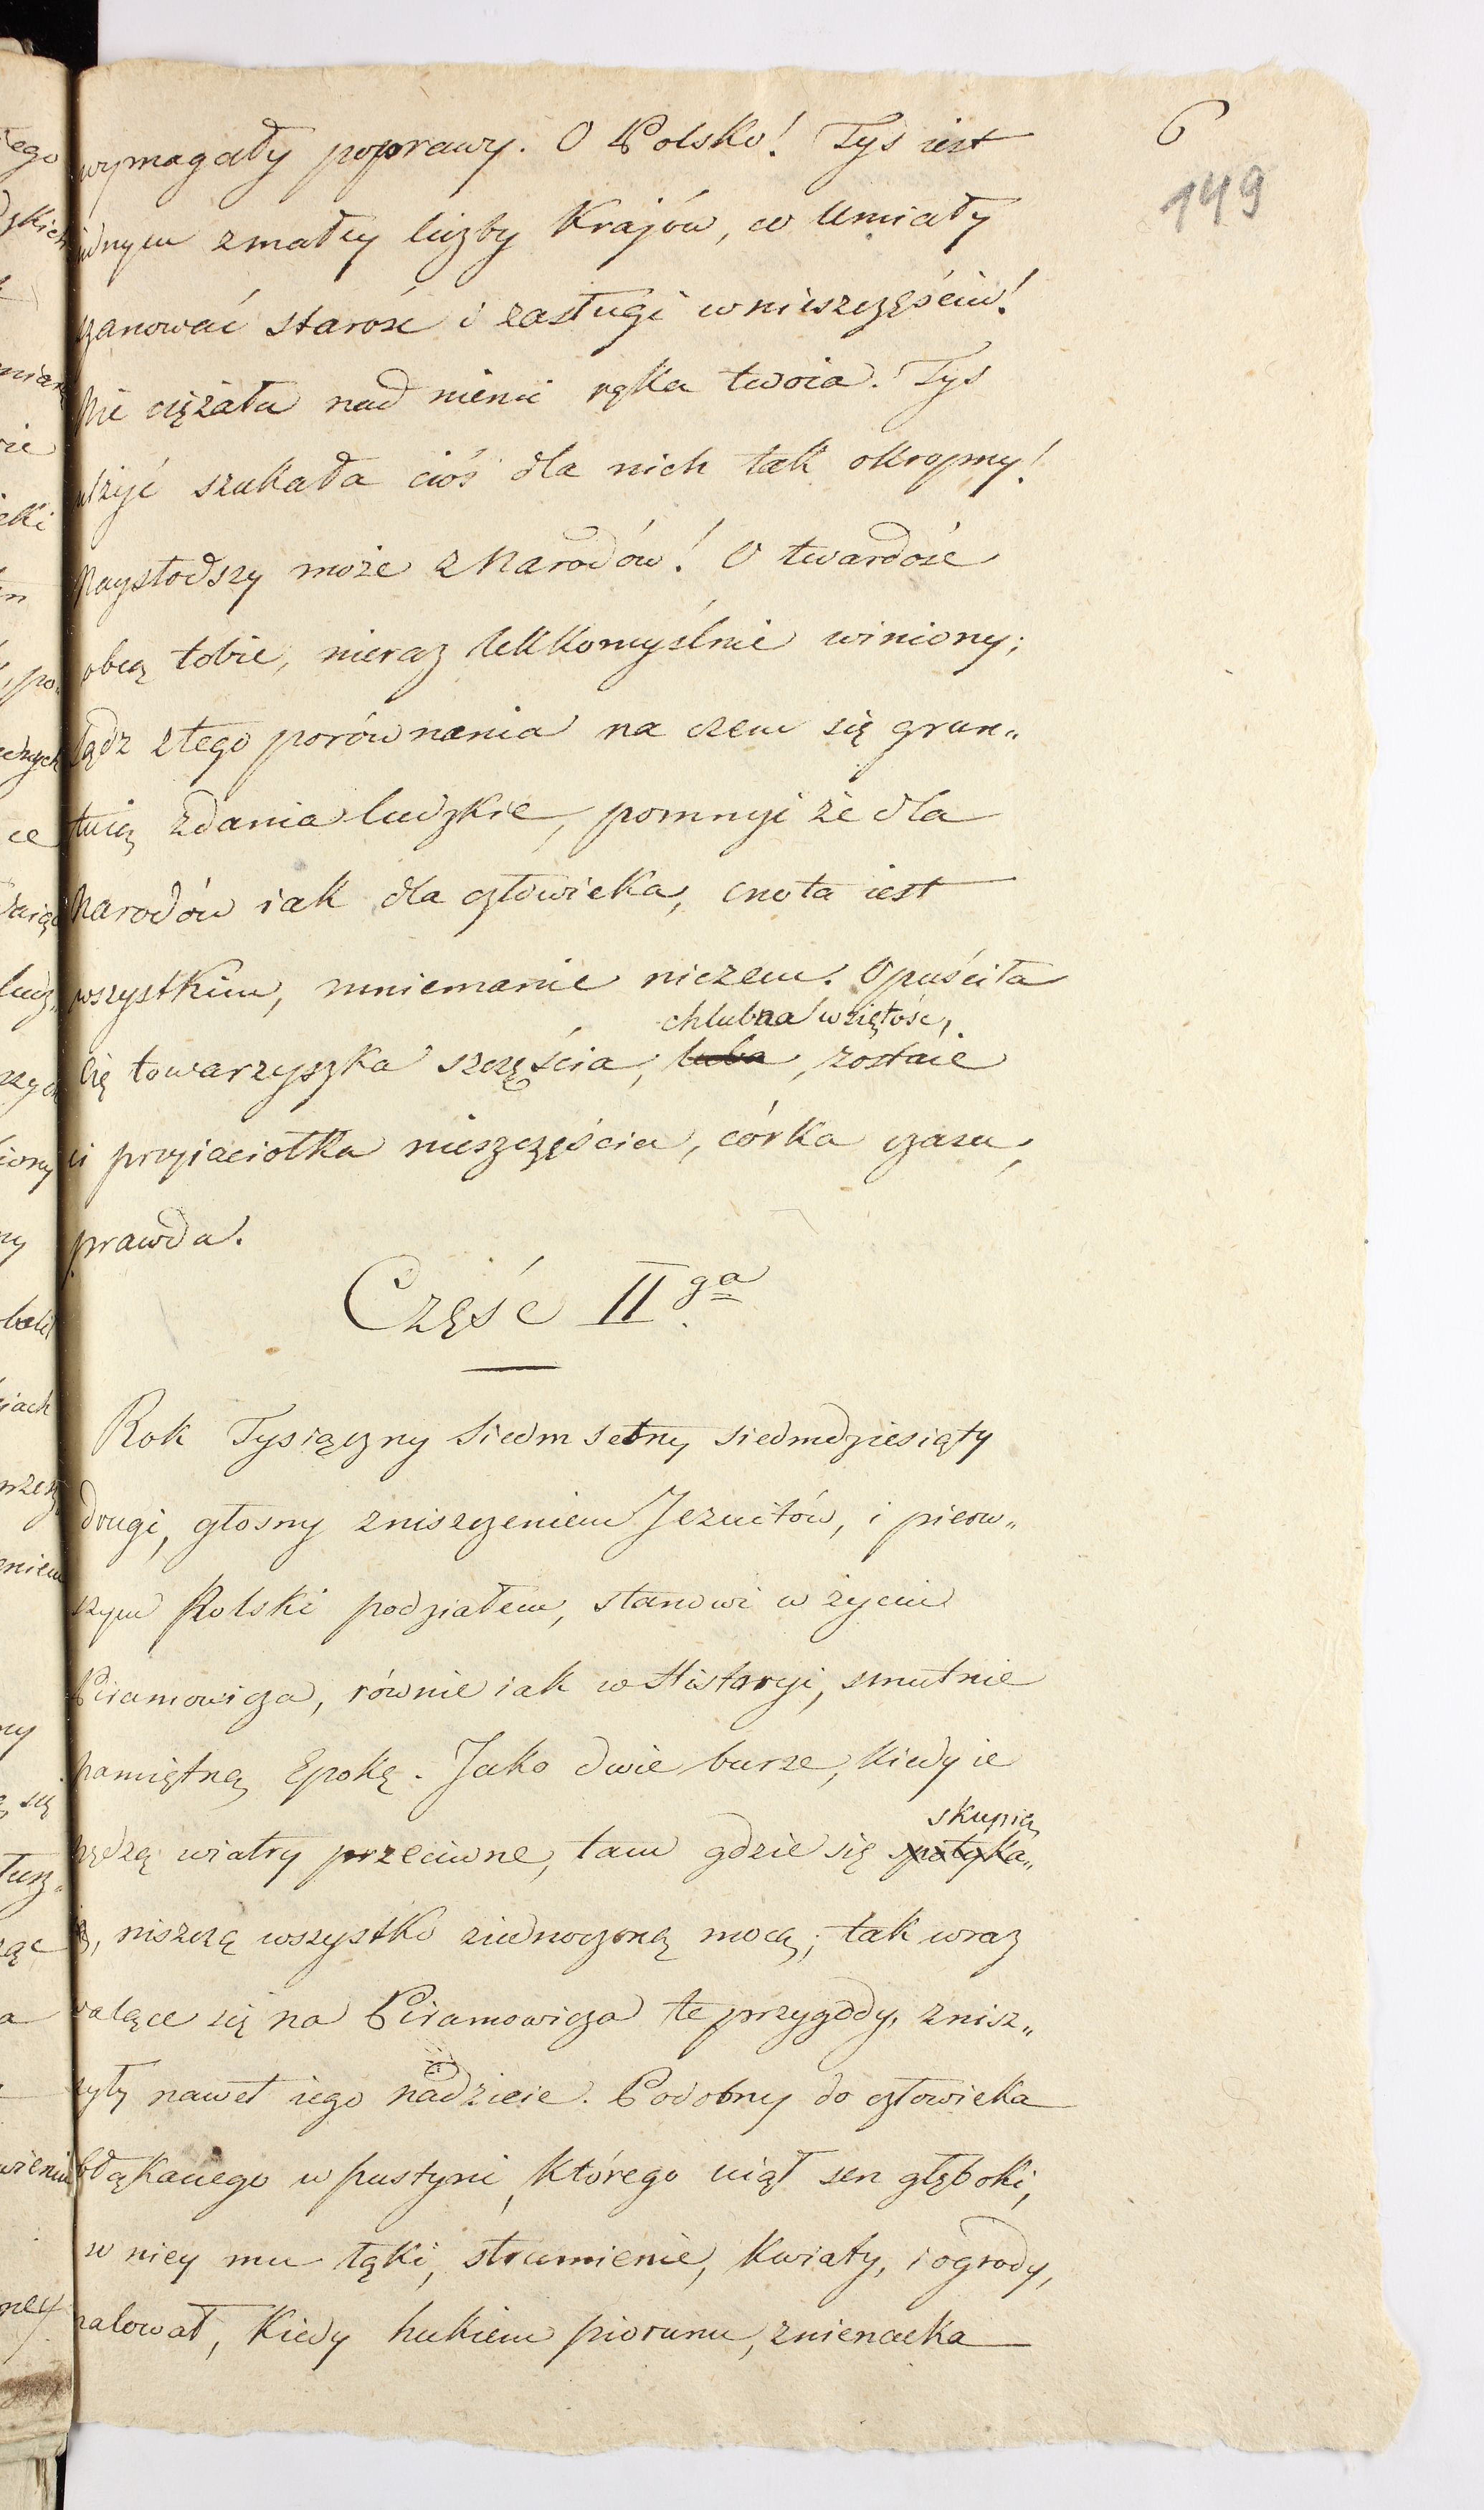 6
149
wymagały poprawy. O Polsko! Tyś iest
iednym z małey liczby Krajów, co Umiały
szanować starość i zasługi w nieszczęściu!
Nie ciężała nad niemi ręka twoia. Tyś
ulżyć szukała ciós dla nich tak okropny!
Naysłodszy może z Narodów! O twardość
obcą tobie, nieraz lekkomyślnie winiony;
Sądź z tego porównania na czem się grun„
tuią zdania ludzkie, pomnyi że dla
Narodów iak dla człowieka, cnota iest
wszystkim, mniemanie niczem. Opuściła
chlubna wziętość,
Cię towarzyszka szczęścia, luba, zostaie
ci przyiaciołka nieszczęścia, córka czasu,
prawda.
Część II ga
Rok Tysiączny Siedmsetny siedmdziesiąty
drugi, głosny zniszczeniem Jezuitów, i pierw„
szym Polski podziałem, stanowi w życiu
Piramowicza, równie iak w Historyi, smutnie
pamiętną Epokę. Jako dwie burze, kiedy ie
skupią
pędzą wiatry przeciwne, tam gdzie się spotyka„
ią, niszczą wszystko ziednoczoną mocą; tak wraz
walące się na Piramowicza te przygody, znisz„
czyły nawet iego nadzieie. Podobny do człowieka
obłąkanego w pustyni, którego uiął sen głęboki,
w niey mu łąki, strumienie, kwiaty, i ogrody,
malował, kiedy hukiem piorunu, znienacka